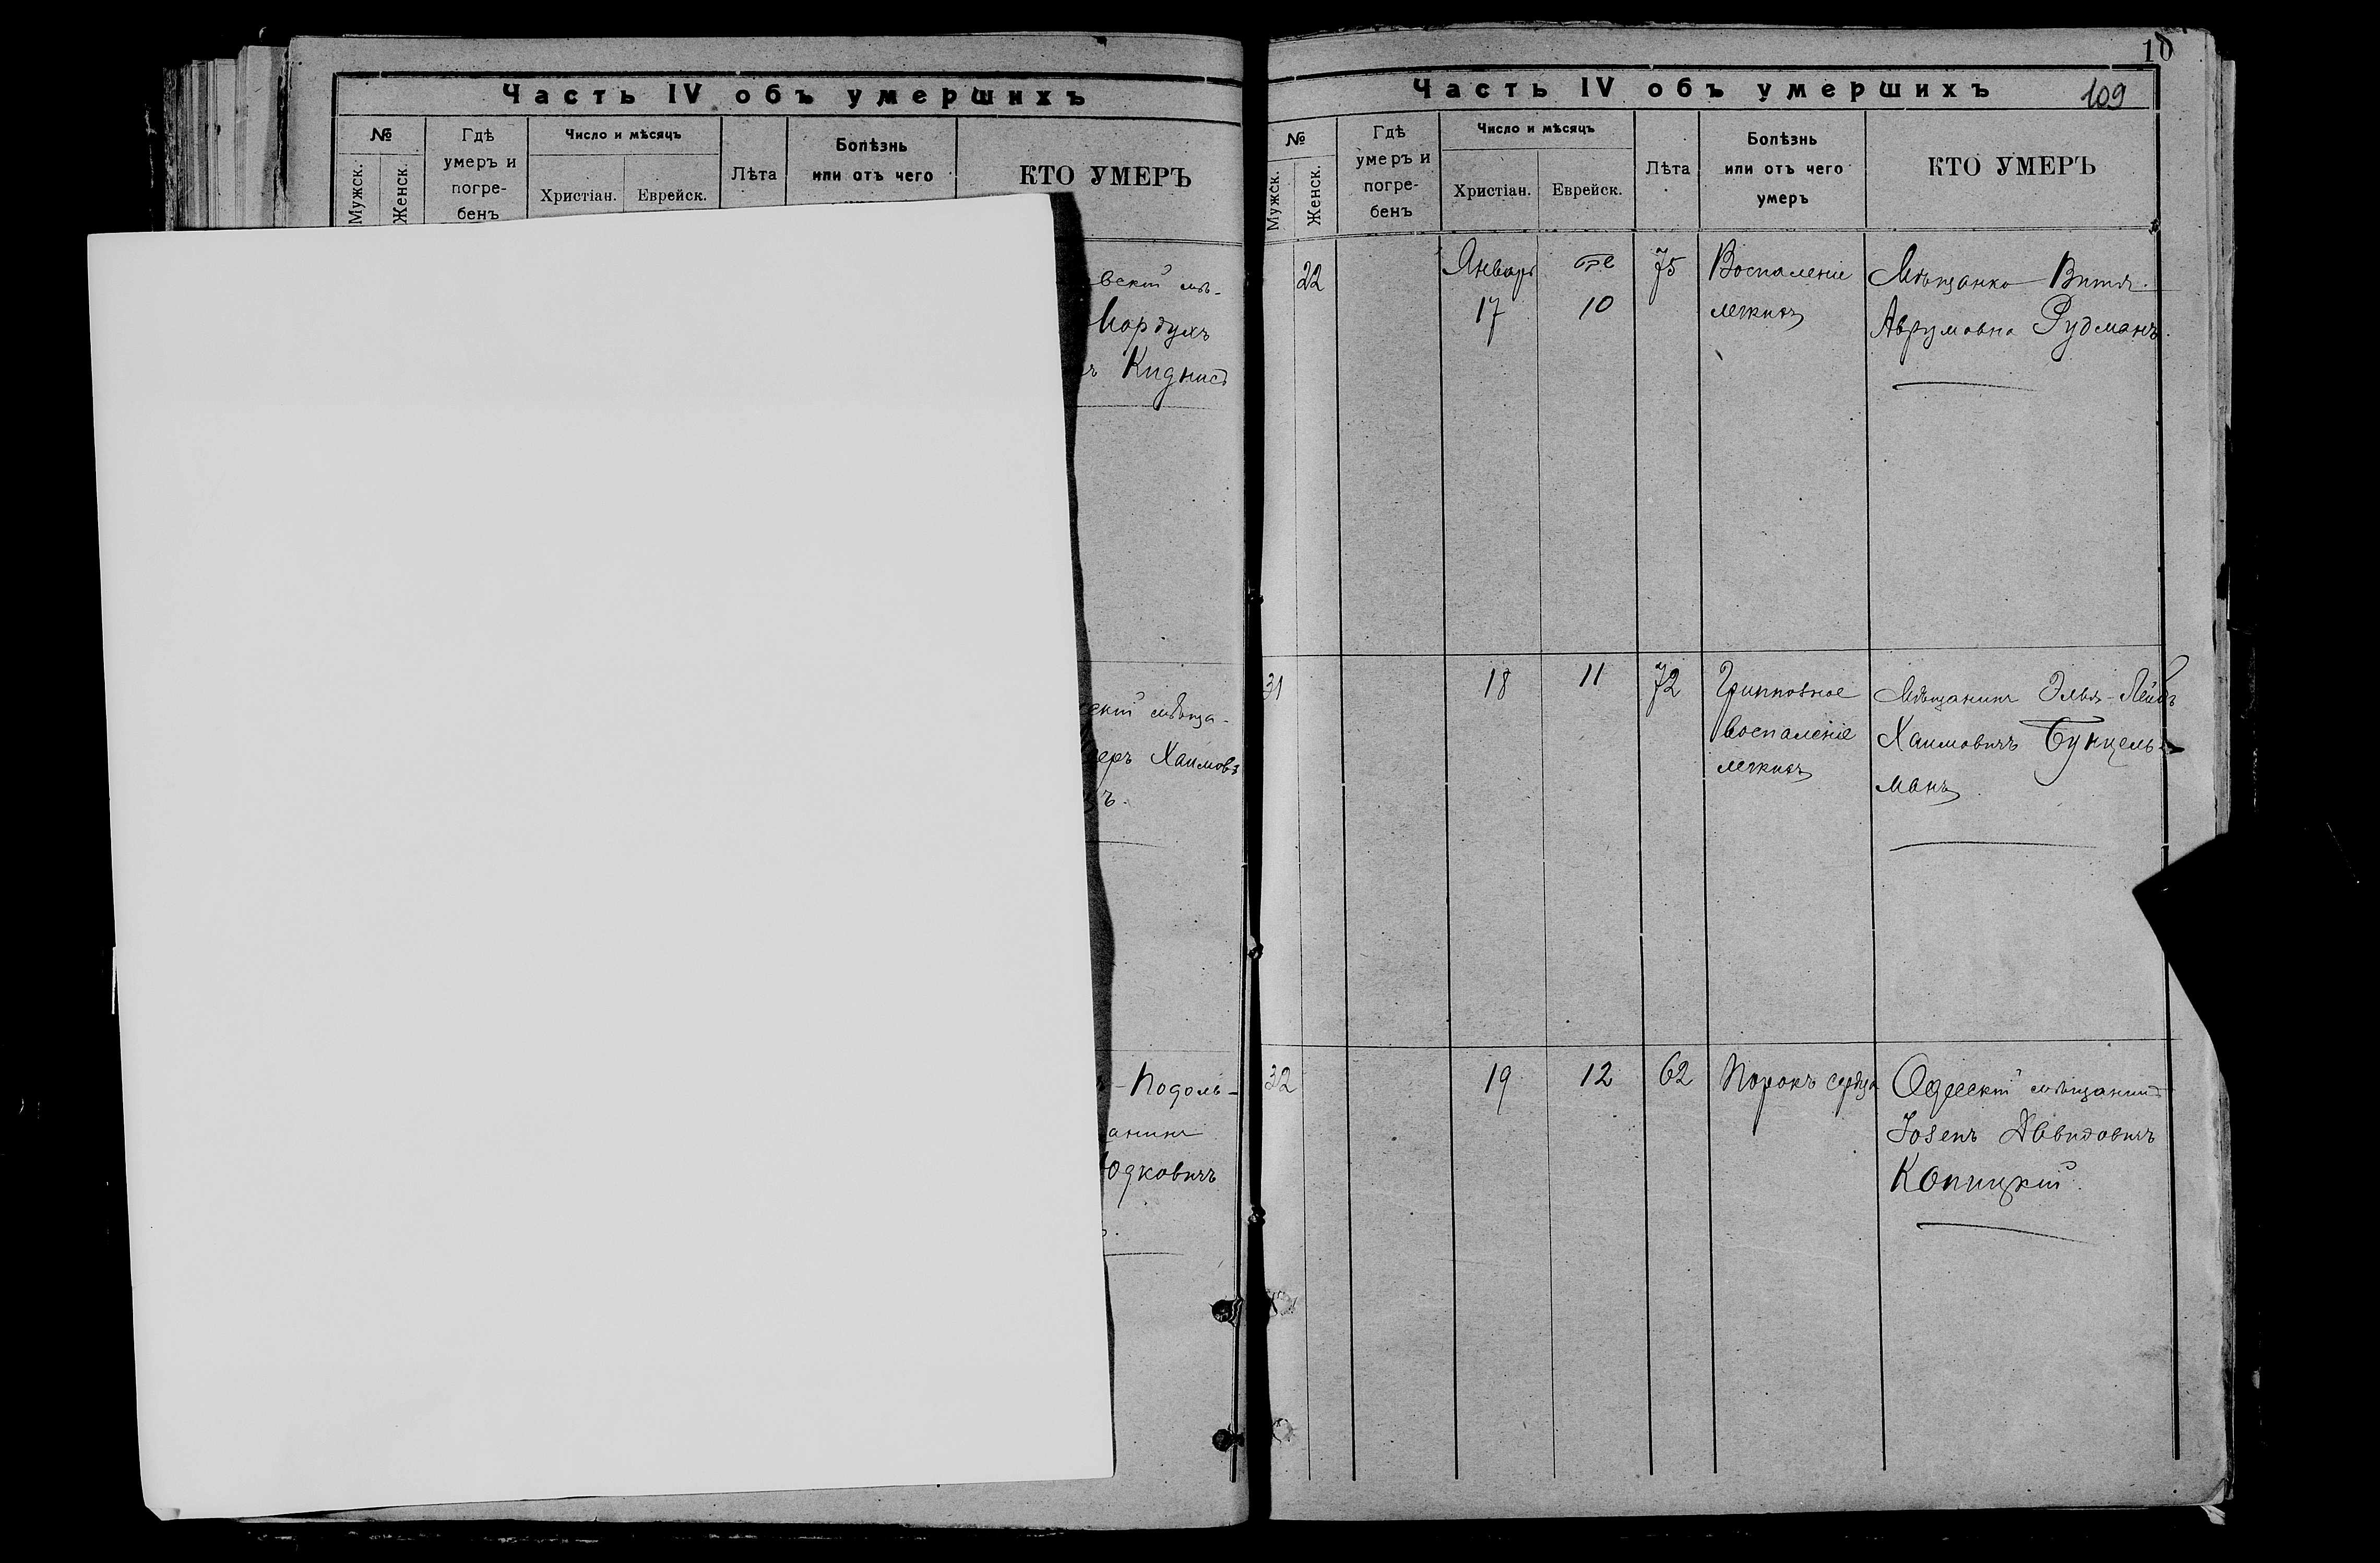 Часть IV объ умершихъ
№
Мужск.
Женск.
Гдѣ
умеръ и
погре-
бенъ
Число и мѣсяцъ
Христіан.
Еврейск.
Лѣта
Болѣзнь
или отъ чего
КТО УМЕРЪ
вскій мѣ-
Мордухъ
Киднисъ
скій мѣща-
еръ Хаимовъ
ъ.
- Подоль-
анинъ
Юдковичъ
10
Часть IV объ умершихъ
109
№
Мужск.
Женск.
Гдѣ
умеръ и
погре-
бенъ
Число и мѣсяцъ
Христіан.
Еврейск.
Лѣта
Болѣзнь
или отъ чего
умеръ
КТО УМЕРЪ
22
Январь
17
10
75
Воспаленіе
легкихъ
Мѣщанка
Аврумовна Рудманъ.
31
18
11
72
Гриппозное
воспаленіе
легкихъ
Мѣщанинъ Эль-Лейбъ
Хаимовичъ Бунцель-
манъ
32
19
12
62
Порокъ сердца
Одесскій мѣщанинъ
Іосепъ Давидовичъ
Копицкій.